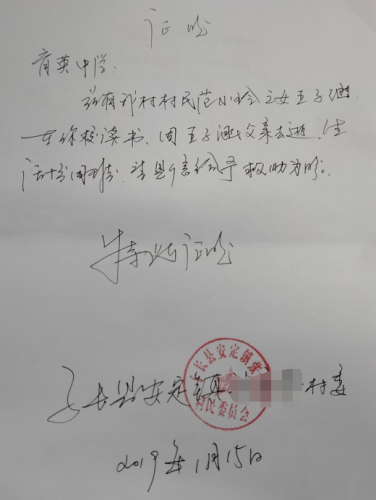 证明
育英中学:
兹有我村村民范小玲之女王子涵
在你校读书,因王子涵父亲去逝,生
活十分困难,请贵校给予救助为盼。
特此证明
子长县安定镇 村委
子长县安定镇
村民委员会
2019年1月15日